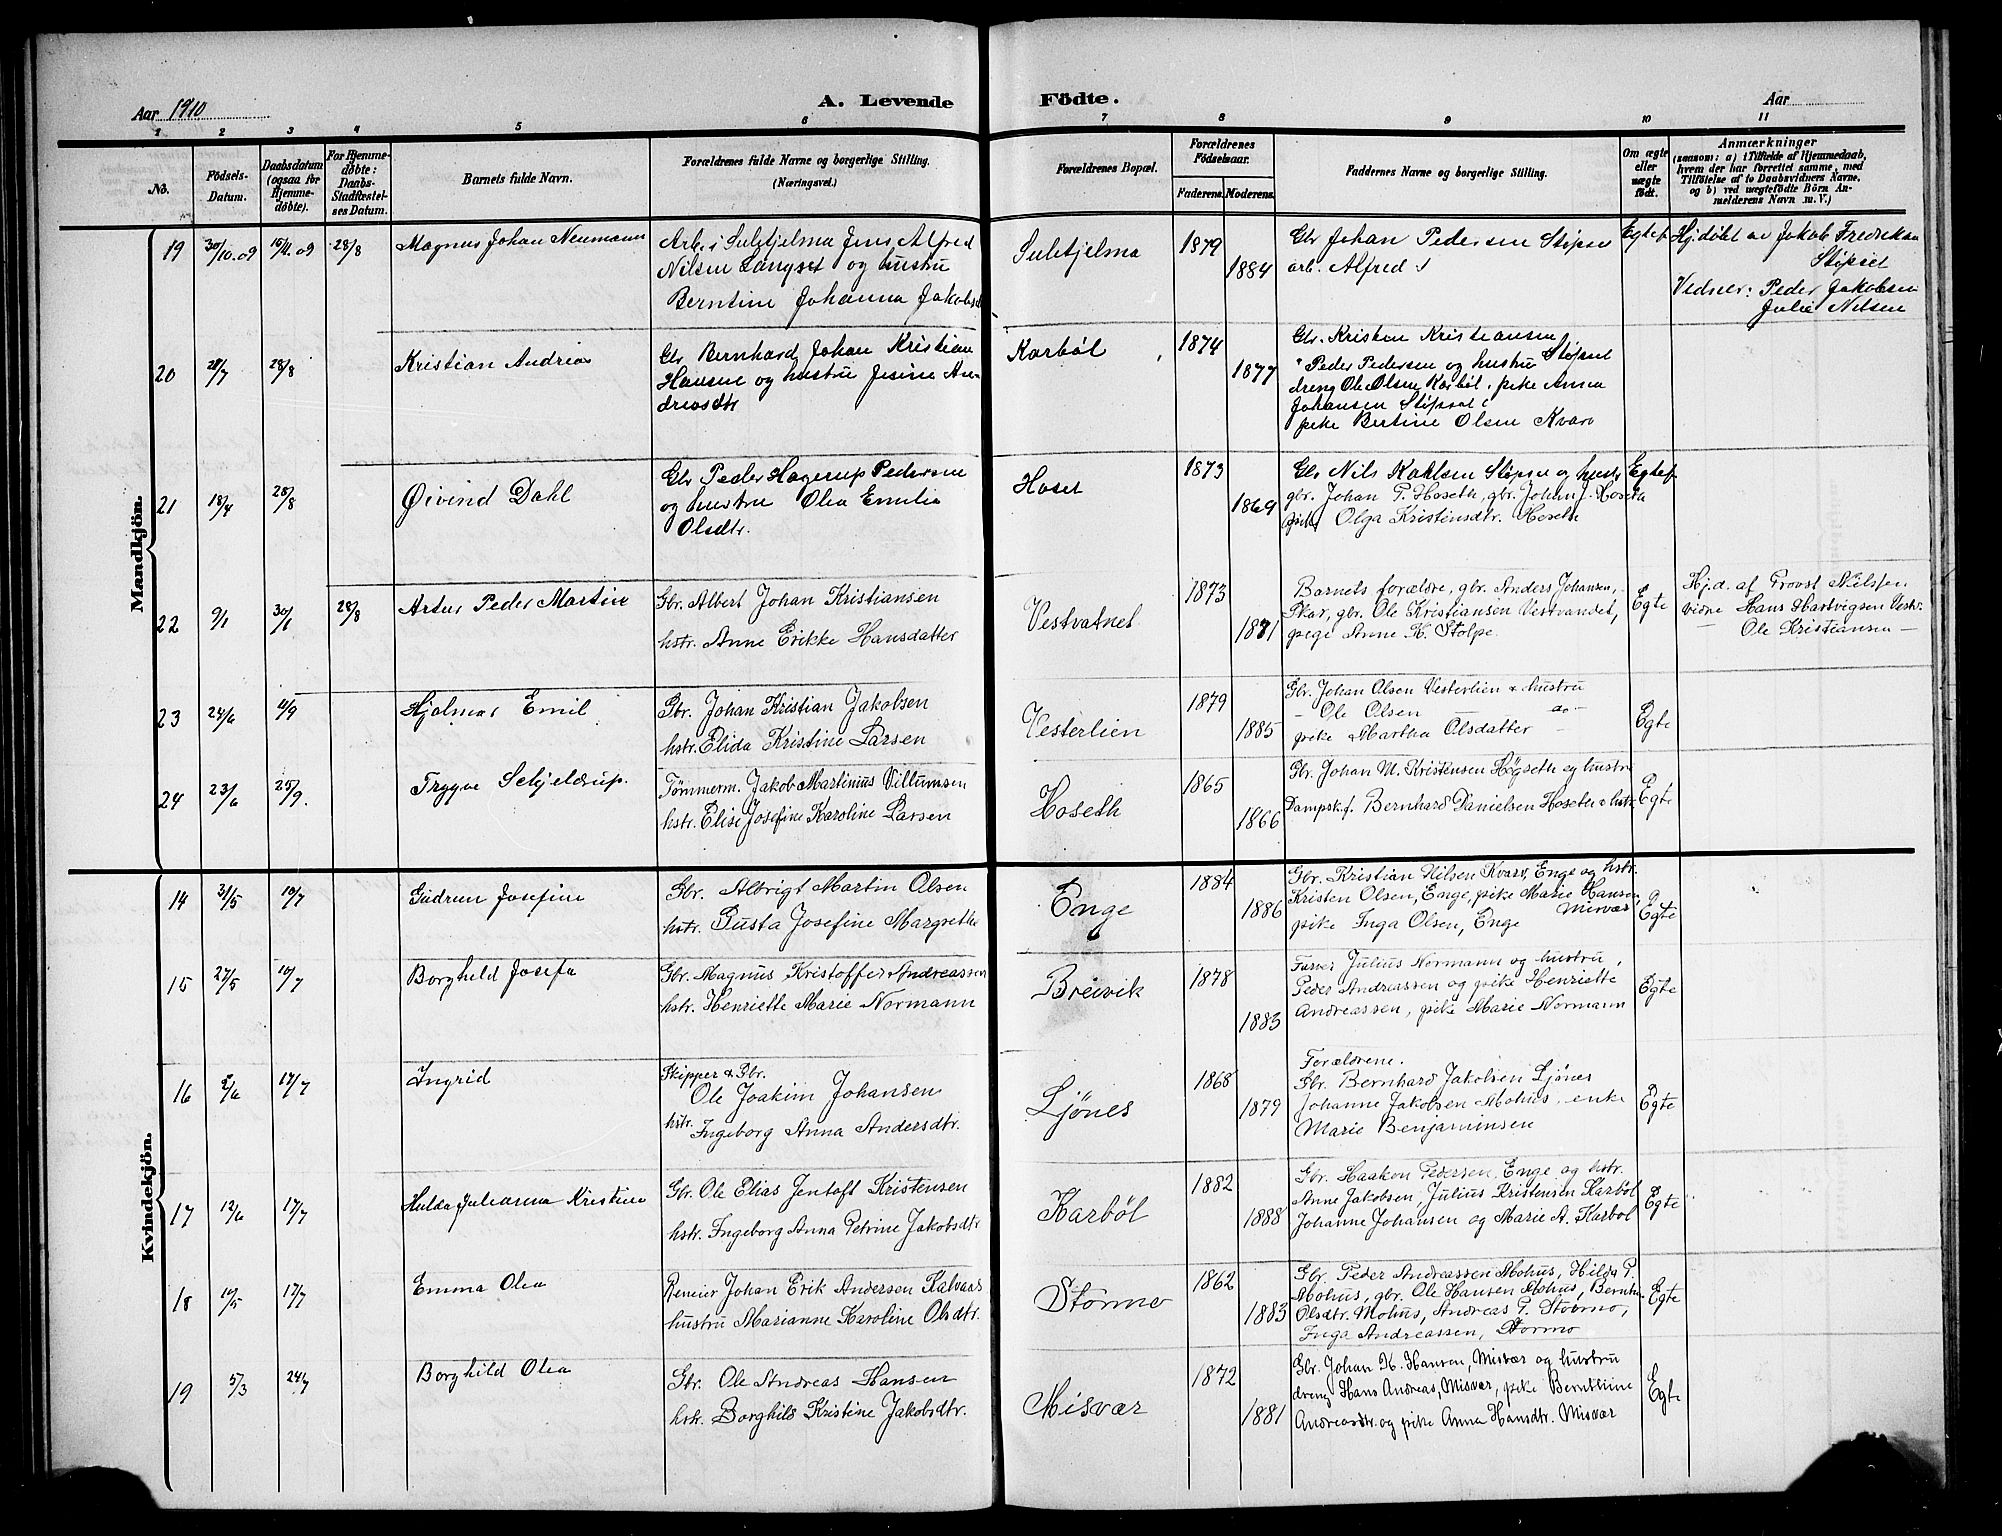 Aar 1910
A. Levende
Födte.
Aar
1 2 3 4 5 6 7 8 9 10 11
No.
Födsels-Datum.
Daabsdatum (ogsaa for Hjemme-döbte).
For Hjemme-døbte: Daabs-Stadfæstel-ses Datum.
Barnets fulde Navn.
Forældrenes fulde Navne og borgerlige Stilling. (Næringsvei.)
Forældrenes Bopæl.
Forældrenes Födselsaar.
Faderens. Moderens.
Faddernes Navne og borgerlige Stilling.
Om ægte eller uægte födt.
Anmærkninger
(saasom: a) i Tilfælde af Hjemmedaab,
hvem der har forrettet samme, med
Tilföielse af to Daabsvidners Navne,
og b) ved uægtefödte Börn An-
melderens Navn m. V.)
Mandkjön.
19 30/10.09 15/11.09 28/8 Magnus Johan Neumann
Arb. i Sulitjelma Jens Alfred
Nilsen Langset og hustru
Berntine Johanna Jakobsd
Sulitjelma 1879 1884
Gbr Johan Pedersen Støpset
arb. Alfred
Egtef
Hj.døbt av Jakob Fredriksen
Støpset
Vidner: Peder Jakobsen
Julie Nilsen
20 28/7 28/8 Kristian Andreas
Gbr Bernhard Johan Kristian
Hansen og hustru Jesine An-
dreasdtr
Karbøl 1874 1877
Gbr. Kristen Kristiansen,
" Peder Pedersen og hustru Støpset
dreng Ole Olsen Karbøl, pike Anna
Johansen Støpset
pike Bertine Olsen Kvarv
21 18/4 28/8 Øivind Dahl
Gbr Peder Hagerup Pedersen
og hustru Olea Emilie
Olsdtr.
Hoset 1873 1869
Gbr Nils Karlsen Støpset og hustr
gbr. Johan P. Hoseth, gbr. Johan J. Hoseth
pike Olga Kristensdtr. Hoseth
Egtef
22 9/1 30/1 28/8 Artur Peder Martin
Gbr. Albert Johan Kristiansen
hstr. Anne Erikke Hansdatter
Vestvatnet 1873 1871
Barnets forældre, gbr. Anders Johansen,
Skar, gbr. Ole Kristiansen Vestvandet,
pige Anne H. Stolpe.
Egte
Hj.d. af Provst Nilssen
vidne Hans Hartvigsen Vestv.
— Ole Kristiansen —
23 24/6 11/9 Hjalmar Emil
Gbr. Johan Kristian Jakobsen
hstr. Elida Kristine Larsen
Vesterlien 1879 1885
Gbr. Johan Olsen Vesterlien & hustru
— Ole Olsen — do —
pike Martha Olsdatter —
Egte
24 23/6 25/9. Trygve Schjeldrup.
Tømmerm. Jakob Martinus Villumsen
hstr. Elise Josefine Karoline Larsen
Hoseth 1865 1866
Gbr. Johan M. Kristensen Høgseth og hustru
Dampsk.f. Bernhard Danielsen Hoseth & hstr.
Egte
Kvindekjön.
14 31/5 10/7 Gudrun Josefine
Gbr. Albrigt Martin Olsen
hstr. Gusta Josefine Margrethe
Enge 1884 1886
Gbr. Kristian Nilsen Kvarv, Enge og hstr.
Kristen Olsen, Enge, pike Marie Hansen,
Misvær
pike Inga Olsen, Enge
Egte
15 27/5 10/7 Borghild Josefa
Gbr. Magnus Kristoffer Andreassen
hstr. Henriette Marie Normann
Breivik 1878 1883
Farver Julius Normann og hustru,
Peder Andreassen og pike Henriette
Andreassen, pike Marie Normann
Egte
16 2/6 17/7 Ingrid
Skipper & Gbr.
Ole Joakim Johansen
hstr. Ingeborg Anna Andersdtr.
Ljönes 1868 1879
Forældrene.
Gbr. Bernhard Jakobsen Ljönes
Johanne Jakobsen Mohus, enke
Marie Benjaminsen
Egte
17 12/6 17/7 Hulda Julianna Kristine
Gbr. Ole Elias Jentoft Kristensen
hstr. Ingeborg Anna Petrine Jakobsdtr
Karbøl 1882 1888
Gbr. Haakon Pedersen, Enge og hstr.
Anne Jakobsen, Julius Kristensen Karbøl
Johanne Johansen og Marie A. Karbøl
Egte
18 10/5 17/7 Emma Olea
Reneier Johan Erik Andersen Kalvaas
hustru Marianne Karoline Olsdtr.
Stormo 1862 1883
Gbr. Peder Andreassen Mohus, Hilda P.
Mohus, gbr. Ole Hansen Mohus, Bernh.
Olsdtr. Mohus, Andreas P. Stormo,
Inga Andreassen, Stormo
Egte
19 5/3 24/7 Borghild Olea
Gbr. Ole Andreas Hansen
hstr. Borghild Kristine Jakobsdtr.
Misvær 1872 1881
Gbr. Johan H. Hansen, Misvær og hustru
dreng Hans Andreas, Misvær, pike Bernthine
Andreasdtr. og pike Anna Hansdtr. Misvær
Egte